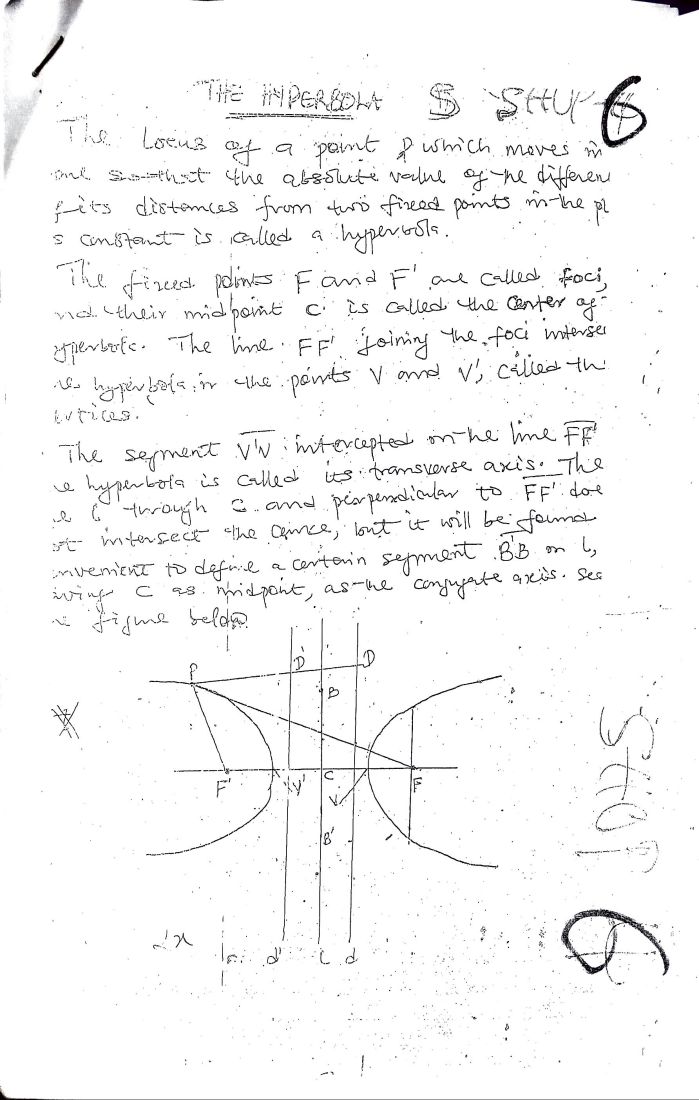 THE HYPERBOLA $ SHUP 6
The Locus of a point P which moves in
one so that the absolute value of the differen
f its distances from two fixed points in the pl
s constant is called a hyperbola.
The fixed points F and F' are called foci,
nd their midpoint C is called the center of
yperbola. The line FF' joining the foci interse
he hyperbola in the points V and V', called th
ertices.
The segment V'V intercepted on the line FF'
e hyperbola is called its transverse axis. The
e L through C and perpendicular to FF' doe
ot intersect the curve, but it will be found
nvenient to define a certain segment B'B on L,
aving C as midpoint, as the conjugate axis. See
e figure below
P D' D
B
F' V' C F
V
B'
2x
d' L d
SHOP